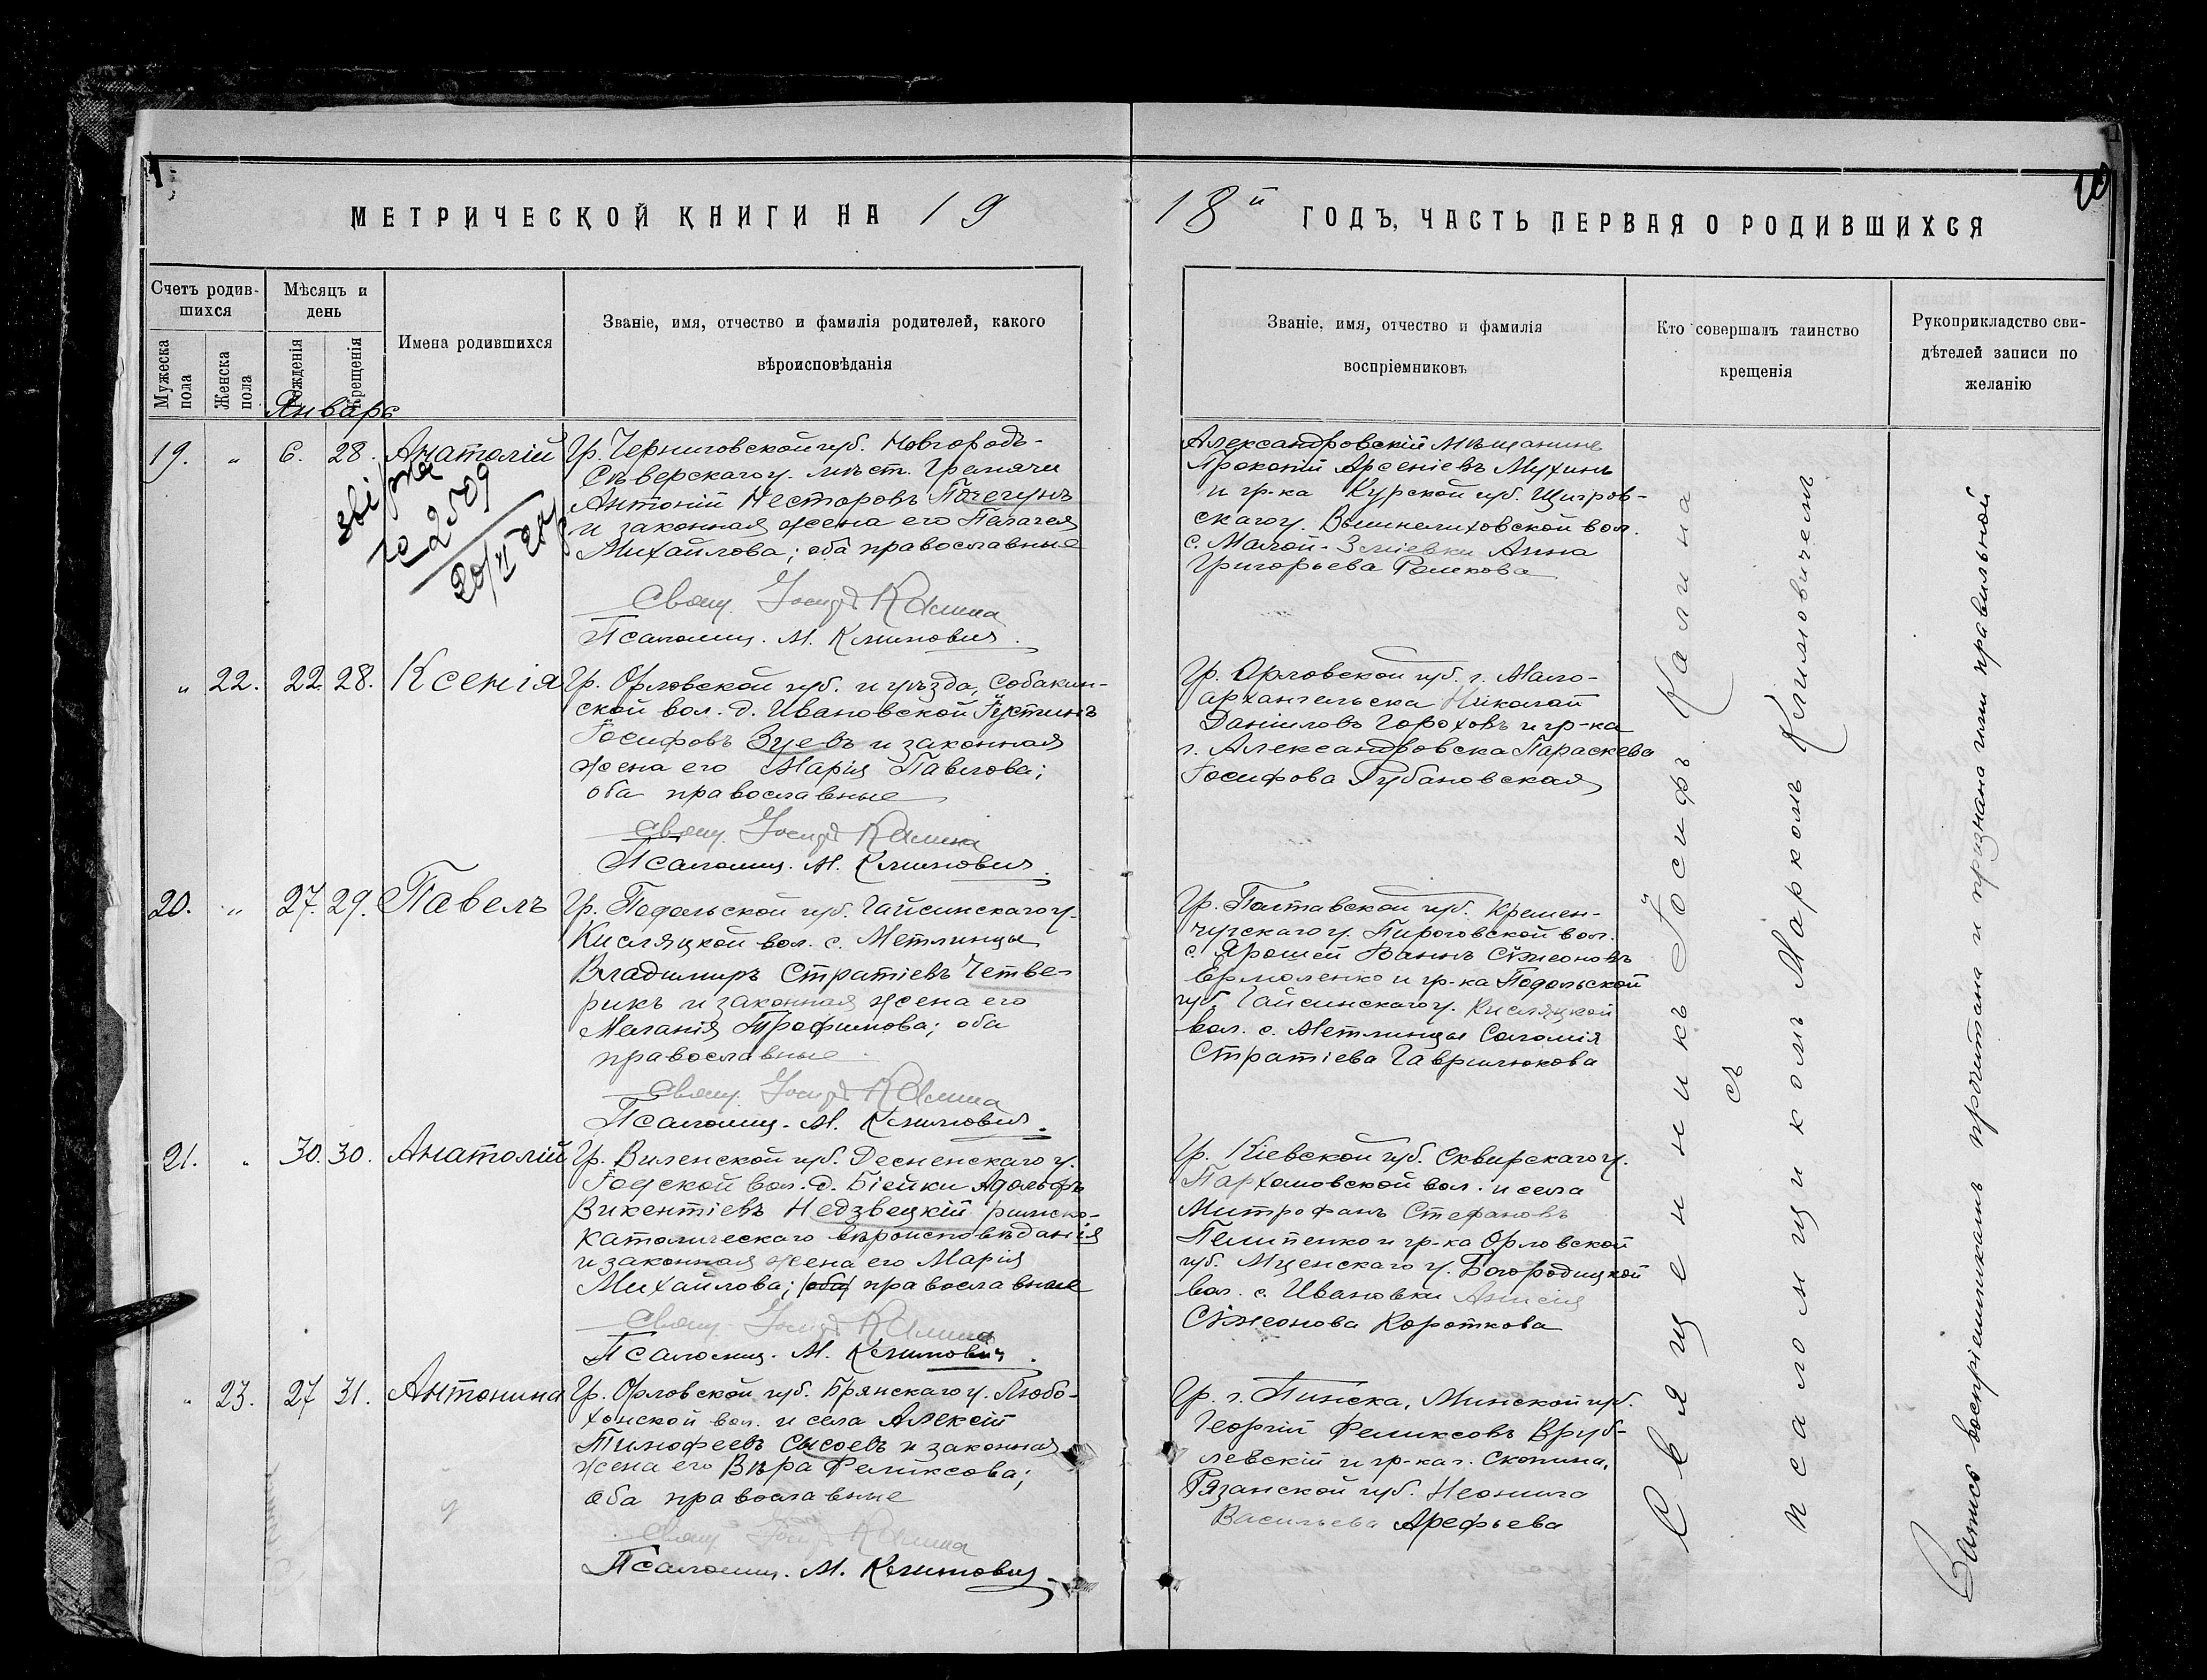 МЕТРИЧЕСКОЙ КНИГИ НА 19
18й ГОДЪ, ЧАСТЬ ПЕРВАЯ О РОДИВШИХСЯ
Счетъ родив-
шихся
Мѣсяцъ и
день
Мужеска
пола
Женска
пола
Рожденія
Крещенія
Имена родившихся
Званіе, имя, отчество и фамилія родителей, какого
вѣроисповѣданія
Званіе, имя, отчество и фамилія
воспріемниковъ
Кто совершалъ таинство
крещенія
Рукоприкладство сви-
дѣтелей записи по
желанію
Январь
19. " 6. 28. Анатолій
2509
Гр. Черниговской губ. Новгородъ-
Сѣверскаго у. мѣст. Гремячи
Антоній Несторовъ Почечунъ
и законная жена его Пелагея
Михайлова; оба православные
Свящ. Іосифъ Калина
Псаломщ. М. Климович.
Александровскій мѣщанинъ
Прокопій Арсеніевъ Мухинъ
и гр-ка Курской губ. Щигров-
скаго у. вол.
с. Малой-Зміевки Анна
Григорьева
" 22. 22. 28. Ксенія
Гр. Орловской губ. и уѣзда, Собакин-
ской вол. д. Ивановской Іустинъ
Іосифовъ Зуевъ и законная
жена его Марія Павлова;
оба православные
Свящ. Іосифъ Калина
Псаломщ. М. Климович.
Гр. Орловской губ. г. Мало-
архангельска Николай
Даніиловъ Гороховъ и гр-ка
г. Александровска Параскева
Іосифова Рубановская
20. " 27. 29. Павелъ
Гр. Подольской губ. Гайсинскаго у.
Кисляцкой вол. с. Метлинцы
Владимиръ Стратіевъ Четве-
рикъ и законная жена его
Меланія Трофимова; оба
православные
Свящ. Іосифъ Калина
Псаломщ. М. Климович.
Гр. Полтавской губ. Кремен-
чугскаго у. Пироговской вол.
с. Ярошей Іоаннъ Сѵмеоновъ
Ермоленко и гр-ка Подольской
губ. Гайсинскаго у. Кисляцкой
вол. с. Метлинцы Соломія
Стратіева Гаврилюкова
21. " 30. 30. Анатолій
Гр. Виленской губ. Десненскаго у.
вол. д. Адольфъ
Викентіевъ Недзвецкій римско-
католическаго вѣроисповѣданія
и законная жена его Марія
Михайлова; (оба) православные
Свящ. Іосифъ Калина
Псаломщ. М. Климович.
Гр. Кіевской губ. Сквирскаго у.
Пархомовской вол. и села
Митрофанъ Стефановъ
Пелипенко и гр-ка Орловской
губ. Мценскаго у. Богородицкой
вол. с. Ивановки Анисія
Сѵмеонова Короткова
" 23. 27 31. Антонина
Гр. Орловской губ. Брянскаго у. Любо-
хонской вол. и села Алексій
Тимофеевъ Сысоевъ и законная
жена его Вѣра Феликсова;
оба православные
Свящ. Іосифъ Калина
Псаломщ. М. Климович
Гр. г. Пинска, Минской губ.
Георгій Феликсовъ Вруб-
левскій и гр-ка г. Скопина,
Рязанской губ. Неонила
Васильева Арефьева
Священникъ Іосифъ Калина
съ
псаломщикомъ Маркомъ Климовичемъ
Запись воспріемниками прочитана и признана ими правильной